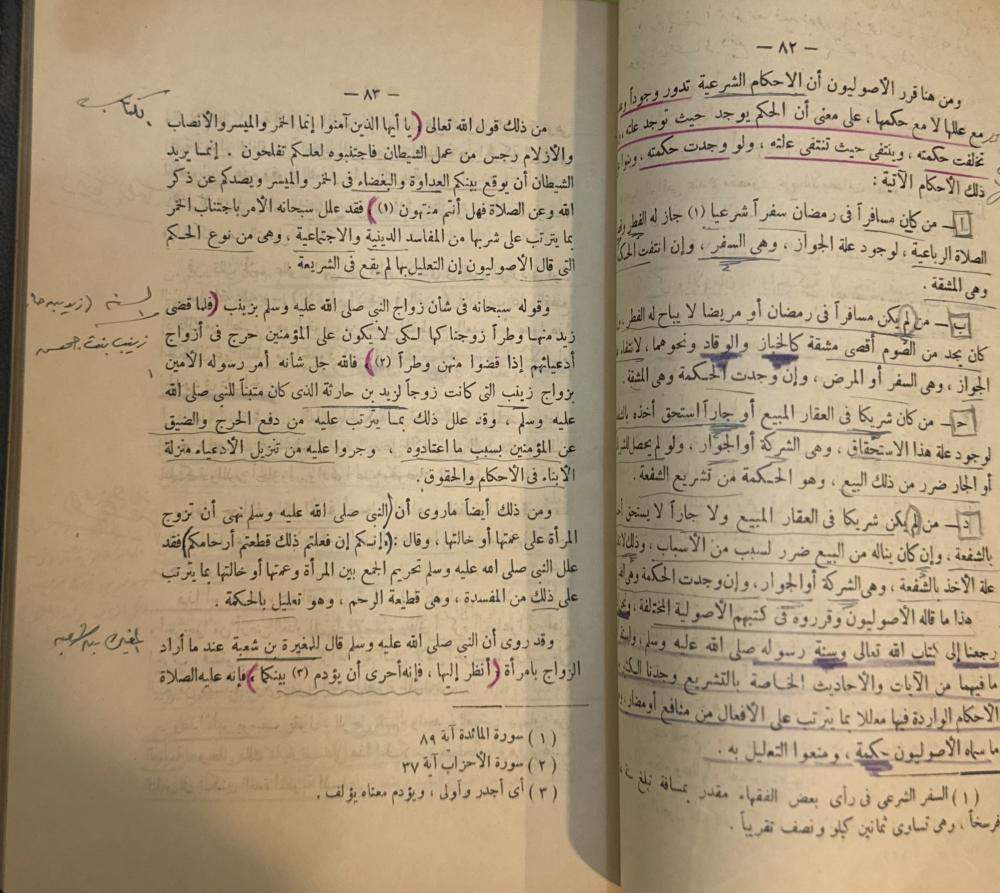 — ٨٢ —
ومن هنا قرر الأصوليون أن الأحكام الشرعية تدور وجوداً
مع عللها لا مع حكمها، على معنى أن الحكم يوجد حيث توجد علته،
تخلفت حكمته، وينتفى حيث تنتفى علته، ولو وجدت حكمته،
ذلك الأحكام الآتية:
ا — من كان مسافراً فى رمضان سفراً شرعيا (١) جاز له الفطر
الصلاة الرباعية، لوجود علة الجواز، وهى السفر، وإن انتفت الحكمة
وهى المشقة.
ب — من لم يكن مسافراً فى رمضان أو مريضا لا يباح له الفطر،
كان يجد من الصوم أقصى مشقة كالخباز والوقاد ونحوهما،
الجواز، وهى السفر أو المرض، وإن وجدت الحكمة وهى المشقة.
ح — من كان شريكا فى العقار المبيع أو جاراً استحق أخذه
لوجود علة هذا الاستحقاق، وهى الشركة أو الجوار، ولو لم يحصل
أو الجار ضرر من ذلك البيع، وهو الحكمة من تشريع الشفعة.
د — من لم يكن شريكا فى العقار المبيع ولا جاراً لا يستحق
بالشفعة، وإن كان يناله من البيع ضرر لسبب من الأسباب،
علة الأخذ بالشفعة، وهى الشركة أو الجوار، وإن وجدت الحكمة
هذا ما قاله الأصوليون وقرروه فى كتبهم الأصولية المختلفة،
رجعنا إلى كتاب الله تعالى وسنة رسوله صلى الله عليه وسلم،
ما فيهما من الآيات والأحاديث الخاصة بالتشريع وجدنا
الأحكام الواردة فيها معللا بما يترتب على الأفعال من منافع أو مضار،
ما سماه الأصوليون حكمة، ومنعوا التعليل به.
(١) السفر الشرعى فى رأى بعض الفقهاء مقدر بمسافة تبلغ
فرسخاً، وهى تساوى ثمانين كيلو ونصف تقريباً.
— ٨٣ —
من ذلك قول الله تعالى (يا أيها الذين آمنوا إنما الخمر والميسر والأنصاب
والأزلام رجس من عمل الشيطان فاجتنبوه لعلكم تفلحون. إنما يريد
الشيطان أن يوقع بينكم العداوة والبغضاء فى الخمر والميسر ويصدكم عن ذكر
الله وعن الصلاة فهل أنتم منتهون (١)) فقد علل سبحانه الأمر باجتناب الخمر
بما يترتب على شربها من المفاسد الدينية والاجتماعية، وهى من نوع الحكم
التى قال الأصوليون إن التعليل بها لم يقع فى الشريعة.
وقوله سبحانه فى شأن زواج النبى صلى الله عليه وسلم بزينب (فلما قضى
زيد منها وطراً زوجنا كها لكى لا يكون على المؤمنين حرج فى أزواج
أدعيائهم إذا قضوا منهن وطراً (٢)) فالله جل شأنه أمر رسوله الأمين
بزواج زينب التى كانت زوجاً لزيد بن حارثة الذى كان متبناً للنبى صلى الله
عليه وسلم، وقد علل ذلك بما يترتب عليه من دفع الحرج والضيق
عن المؤمنين بسبب ما اعتادوه، وجروا عليه من تنزيل الأدعياء منزلة
الأبناء فى الأحكام والحقوق.
ومن ذلك أيضاً ماروى أن النبى صلى الله عليه وسلم نهى أن تزوج
المرأة على عمتها أو خالتها، وقال: (إنكم إن فعلتم ذلك قطعتم أرحامكم) فقد
علل النبى صلى الله عليه وسلم تحريم الجمع بين المرأة وعمتها أو خالتها بما يترتب
على ذلك من المفسدة، وهى قطيعة الرحم، وهو تعليل بالحكمة.
وقد روى أن النبى صلى الله عليه وسلم قال للمغيرة بن شعبة عند ما أراد
الزواج بامرأة (أنظر إليها، فإنه أحرى أن يؤدم (٣) بينكما) فإنه عليه الصلاة
(١) سورة المائدة آية ٨٩
(٢) سورة الأحزاب آية ٣٧
(٣) أى أجدر وأولى، ويؤدم معناه يؤلف.
الكتاب
زينب بنت جحش
المغيرة بن شعبه